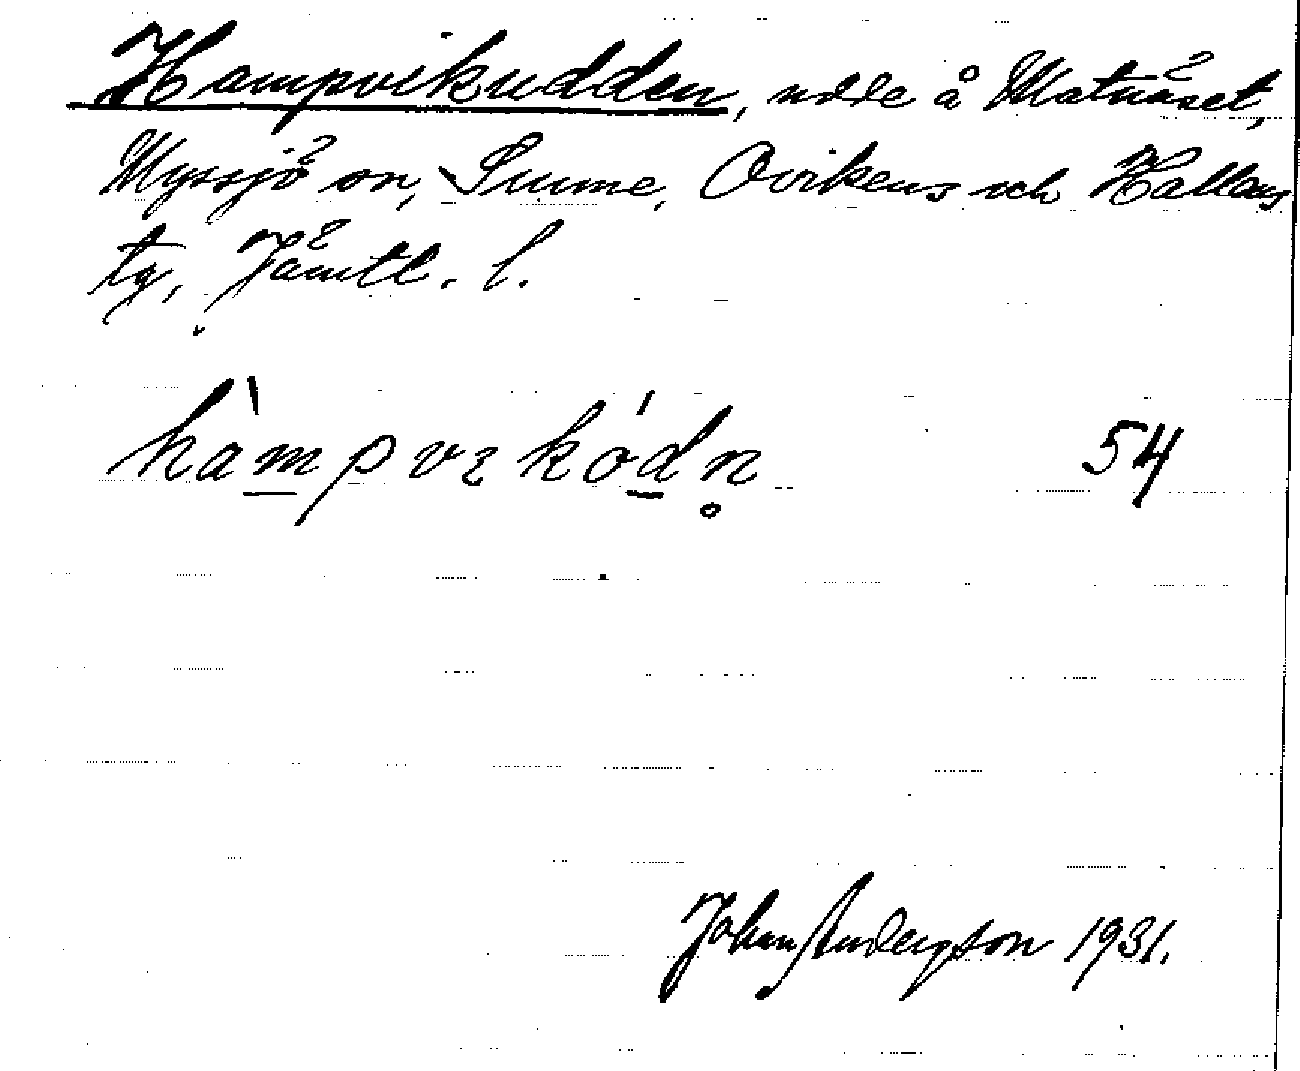 Hampvikudden, udde å Matnäset,
Myssjö sn, Sunne, Ovikens och Hallens
tg, Jämtl. l.
hàmpvıkódn̥ 54
Johan Andersson 1931.